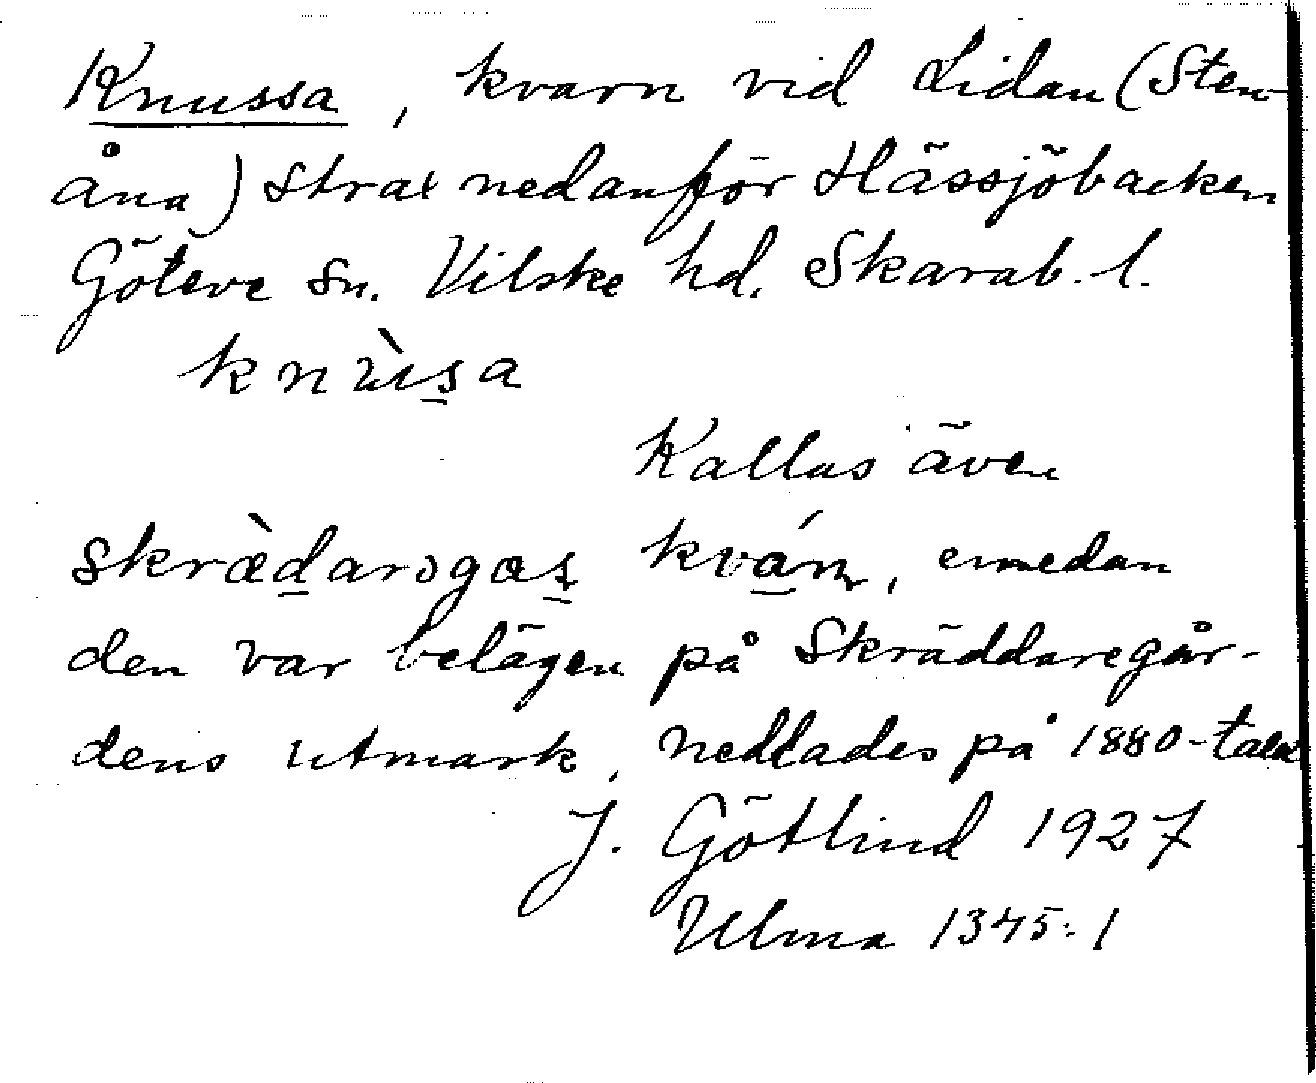 Knussa, kvarn vid Lidan (Sten-
åna) strax nedanför Hässjöbacken
Göteve sn. Vilske hd. Skarab. l.
knùs̲a
Kallas även
skræ̀d̲arogas̲ kvá̲rn, emedan
den var belägen på Skräddaregår-
dens utmark, nedlades på 1880-talet
J. Götlind 1927
Ulma 1345:1